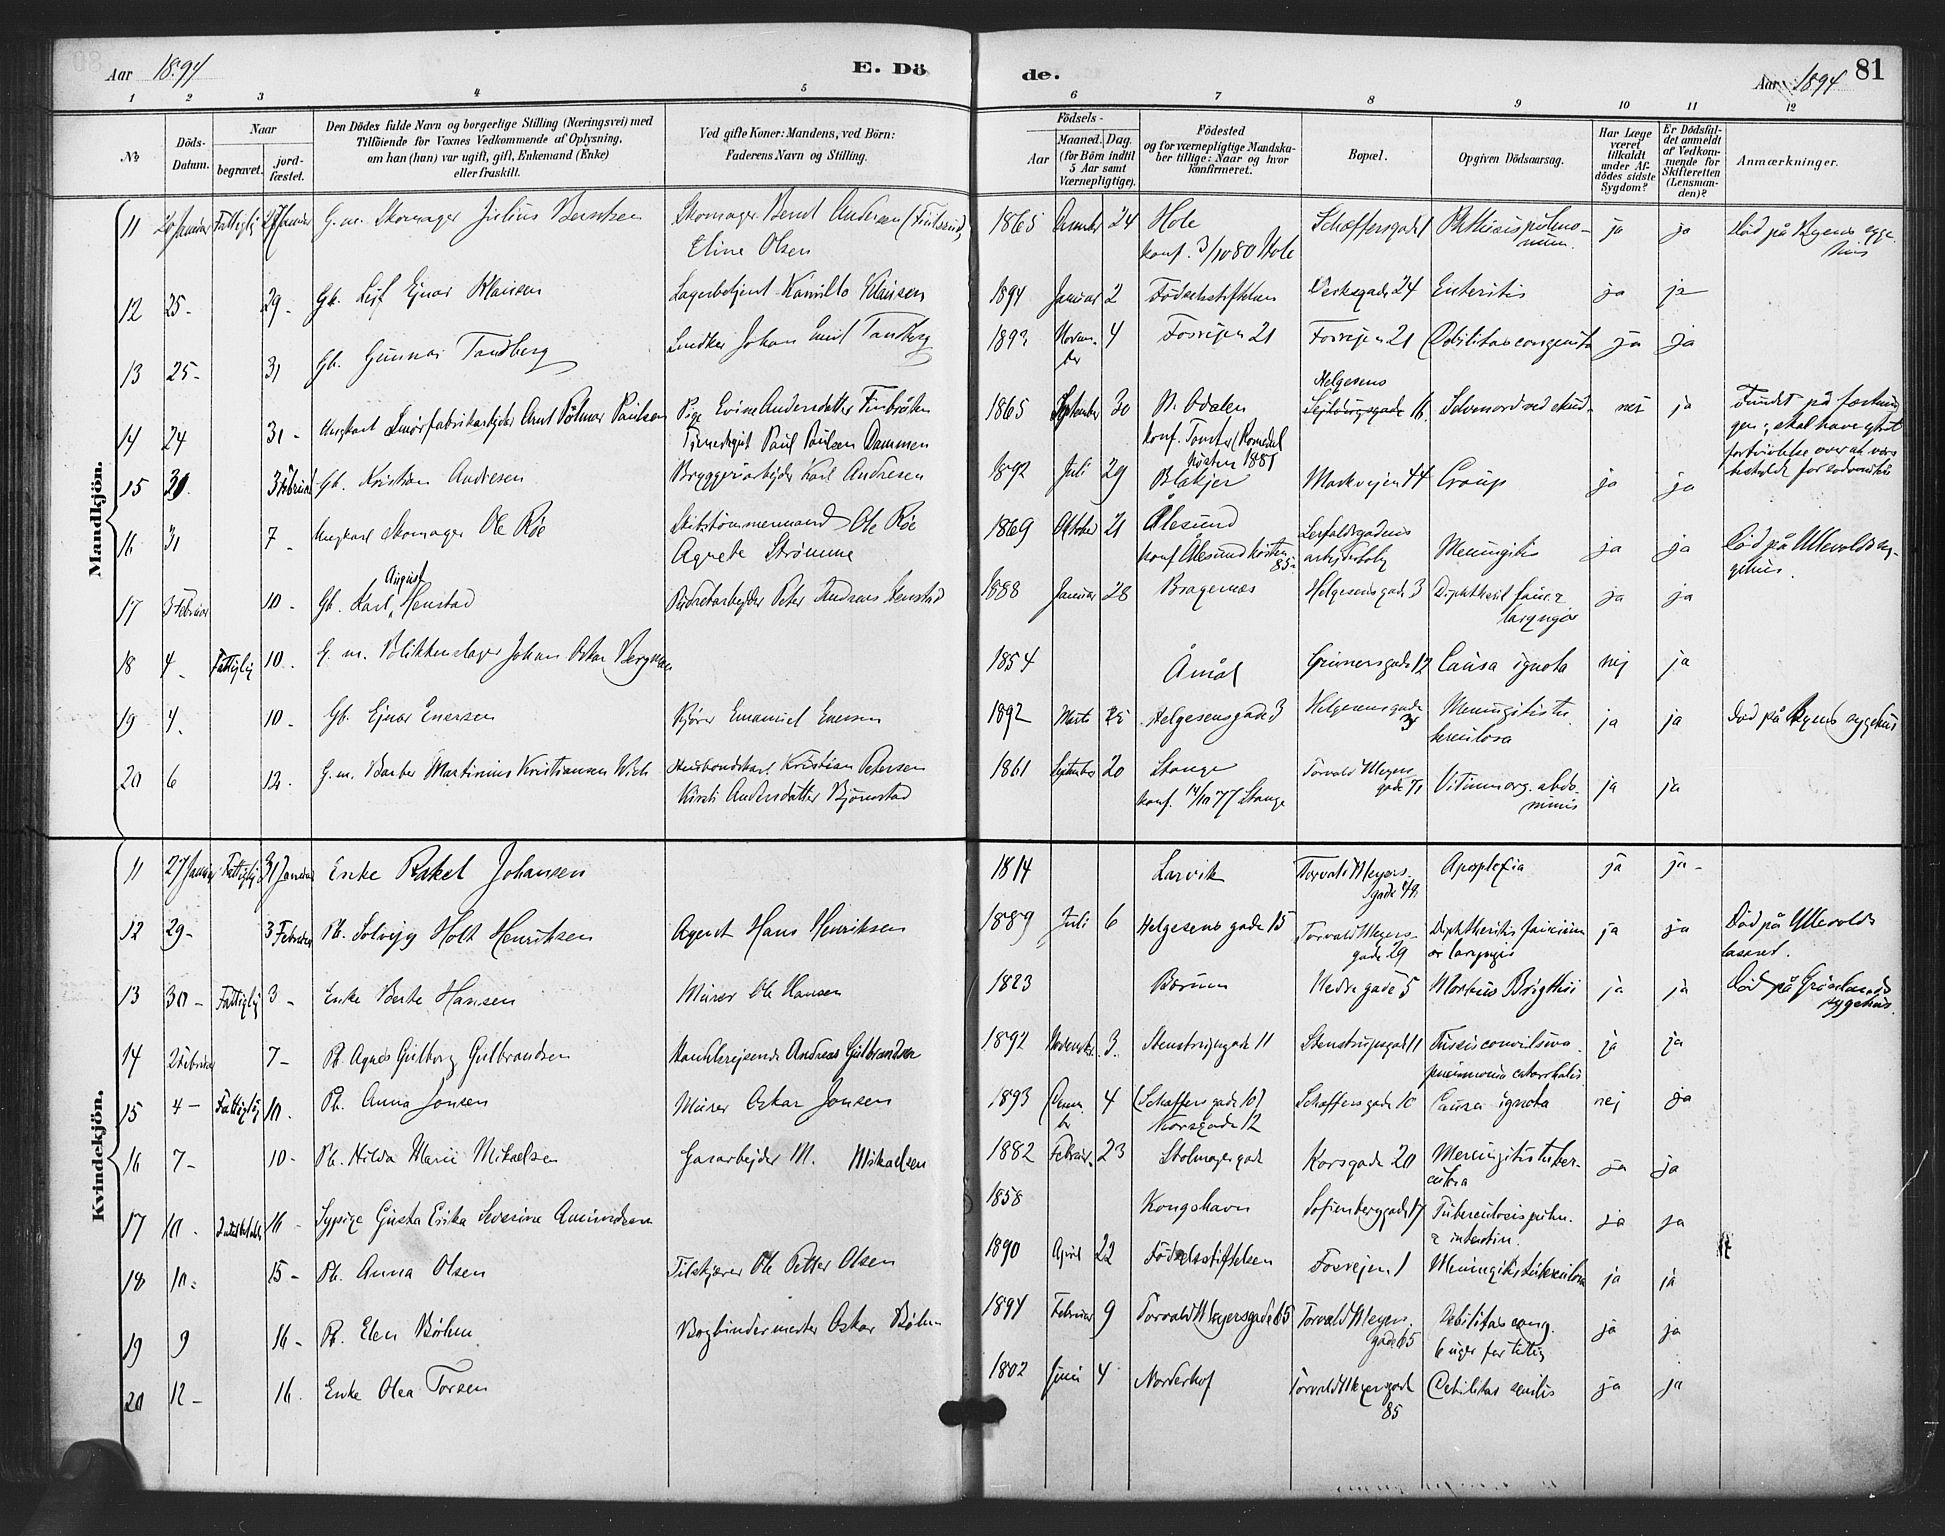 Aar 1894 E. Dö
1 2 3 4 5
№ Döds-Datum. Naar begravet. jord-fæstet. Den Dödes fulde Navn og borgerlige Stilling (Næringsvei) med Tilföiende for Voxnes Vedkommende af Oplysning, om han (hun) var ugift, gift, Enkemand (Enke) eller fraskilt. Ved gifte Koner: Mandens, ved Börn: Faderens Navn og Stilling.
Mandkjön.
11 Januar Fattiglig Januar G. m. Skomager Julius Berntsen Skomager Bernt Andersen
Eline Olsen
12 25- 29- Gb. Leif Ejnar Klausen Lagerbetjent Kamillo Klausen
13 25- 31 Gb. Gunnar Tandberg Johan Emil Tandberg
14 24 31- Ungkarl Arnt Paulsen Pige Evine Andersdatter
Paul Paulsen Dammen
15 3 Februar Gb. Kristian Andresen Bryggeriarbejder Karl Andresen
16 31 7- Ungkarl Skomager Ole Røe Skibstømmermand Ole Røe
Agnete Strømme
17 3 Februar 10- Gb. Karl August Henstad Peter Andreas Henstad
18 4- Fattiglig 10. G. m. Johan Oskar Bergman
19 4. 10- Gb. Ejnar Enersen Kjører Emanuel Enersen
20 6 12. G. m. Barber Martinius Kristiansen Kristian Petersen
Kirsti Andersdatter Bjørnstad
Kvindekjön.
11 27 Januar Fattiglig 31 Januar Enke Rakel Johansen
12 29- 3 Februar Pb. Solvejg Holt Henriksen Agent Hans Henriksen
13 30- Fattiglig 3- Enke Berte Hansen Murer Ole Hansen
14 2 Februar 7- Pb. Agnes Gulborg Gulbrandsen Handelsrejsende Andreas Gulbrandsen
15 4- Fattiglig 10. Pb. Anna Jonsen Murer Oskar Jonsen
16 7- 10- Pb. Hilda Marie Mikaelsen Gasarbejder M. Mikaelsen
17 10. 16- Sypige Gusta Erika Severine Amundsen
18 10. 15- Pb. Anna Olsen Ole Petter Olsen
19 9 16- Pb. Elen Bøhm Bogbindermester Oskar Bøhm
20 12- 16. Enke Olea Torsen
de. Aar 1894 81
6 7 8 9 10 11 12
Födsels- Aar Maaned. Dag. (for Börn indtil 5 Aar samt Værnepligtige). Födested og for værnepligtige Mandska-ber tillige: Naar og hvor konfirmeret. Bopæl. Opgiven Dödsaarsag. Har Læge været tilkaldt under Af-dödes sidste Sygdom? Er Dödsfal-det anmeldt af Vedkom-mende for Skifteretten (Lensman-den)? Anmærkninger.
1865 24 Hole Schæffersgade 1 Phthisis pulmo-num. ja ja Død på Byens syge-hus
konf. 3/10 80 Hole
1894 Januar 2 Fødselsstiftelsen Verksgade 24 Enteritis ja ja
1893 Novem-ber 4 Fosvejen 21 Fosvejen 21 Debilitas congenita ja ja
1865 September 30 N. Odalen Helgesens gade 16. Selvmord ved skud- nej ja Fundet på
konf.
1892 Juli 29 Blakjer Markvejen 44 Croup ja ja
1869 Oktober 21 Ålesund Meningitis ja ja Død på Ullevolds sy-gehus.
konf. Ålesund høsten 85-
1888 Januar 28 Bragernæs Helgesens gade 3 ja ja
1854 Åmål Grünersgade 12 Causa ignota nej ja
1892 Marts 25 Helgesens gade 3 Helgesens gade Meningitis tu-berculosa ja ja Død på Byens sygehus
1861 September 20 Stange Torvald Meyers gade 71 Vitium org. abdo-minis ja ja
konf. 14/10 77 Stange
1814 Larvik Torvald Meyers gade Apoplexia ja ja-
1889 Juli 6 Helgesens gade 15 Torvald Meyers gade 29 Diphtheritis faucium ja ja Død på Ullevolds lasaret.
1823 Bærum Nedregade 5 Morbus Brigthii ja ja Død på Grønlands sygehus.
1892 November 3. Stenstrupsgade 11 Stenstrupsgade 11 Tussis convulsiva pneumonia catarrhalis. ja ja
1893 Decem-ber 4 (Schæffers gade 10) Korsgade 12 Schæffersgade 10 Causa ignota nej ja
1882 Februar 23 Korsgade 20 Meningitis tuber-culosa ja ja
1858 Kongshavn Sofienberggade 17 Tuberculosis pulm. & intestin. ja ja
1890 April 22 Fødselsstiftelsen Fosvejen 1 Meningitis tuberculosa ja ja
1894 Februar 9 Torvald Meyersgade 65 Torvald Meyers gade 65 Debilitas cong. 6 uger for tidlig ja ja
1802 Juni 4 Norderhof Torvald Meyersgade 85 Debilitas senilis ja ja